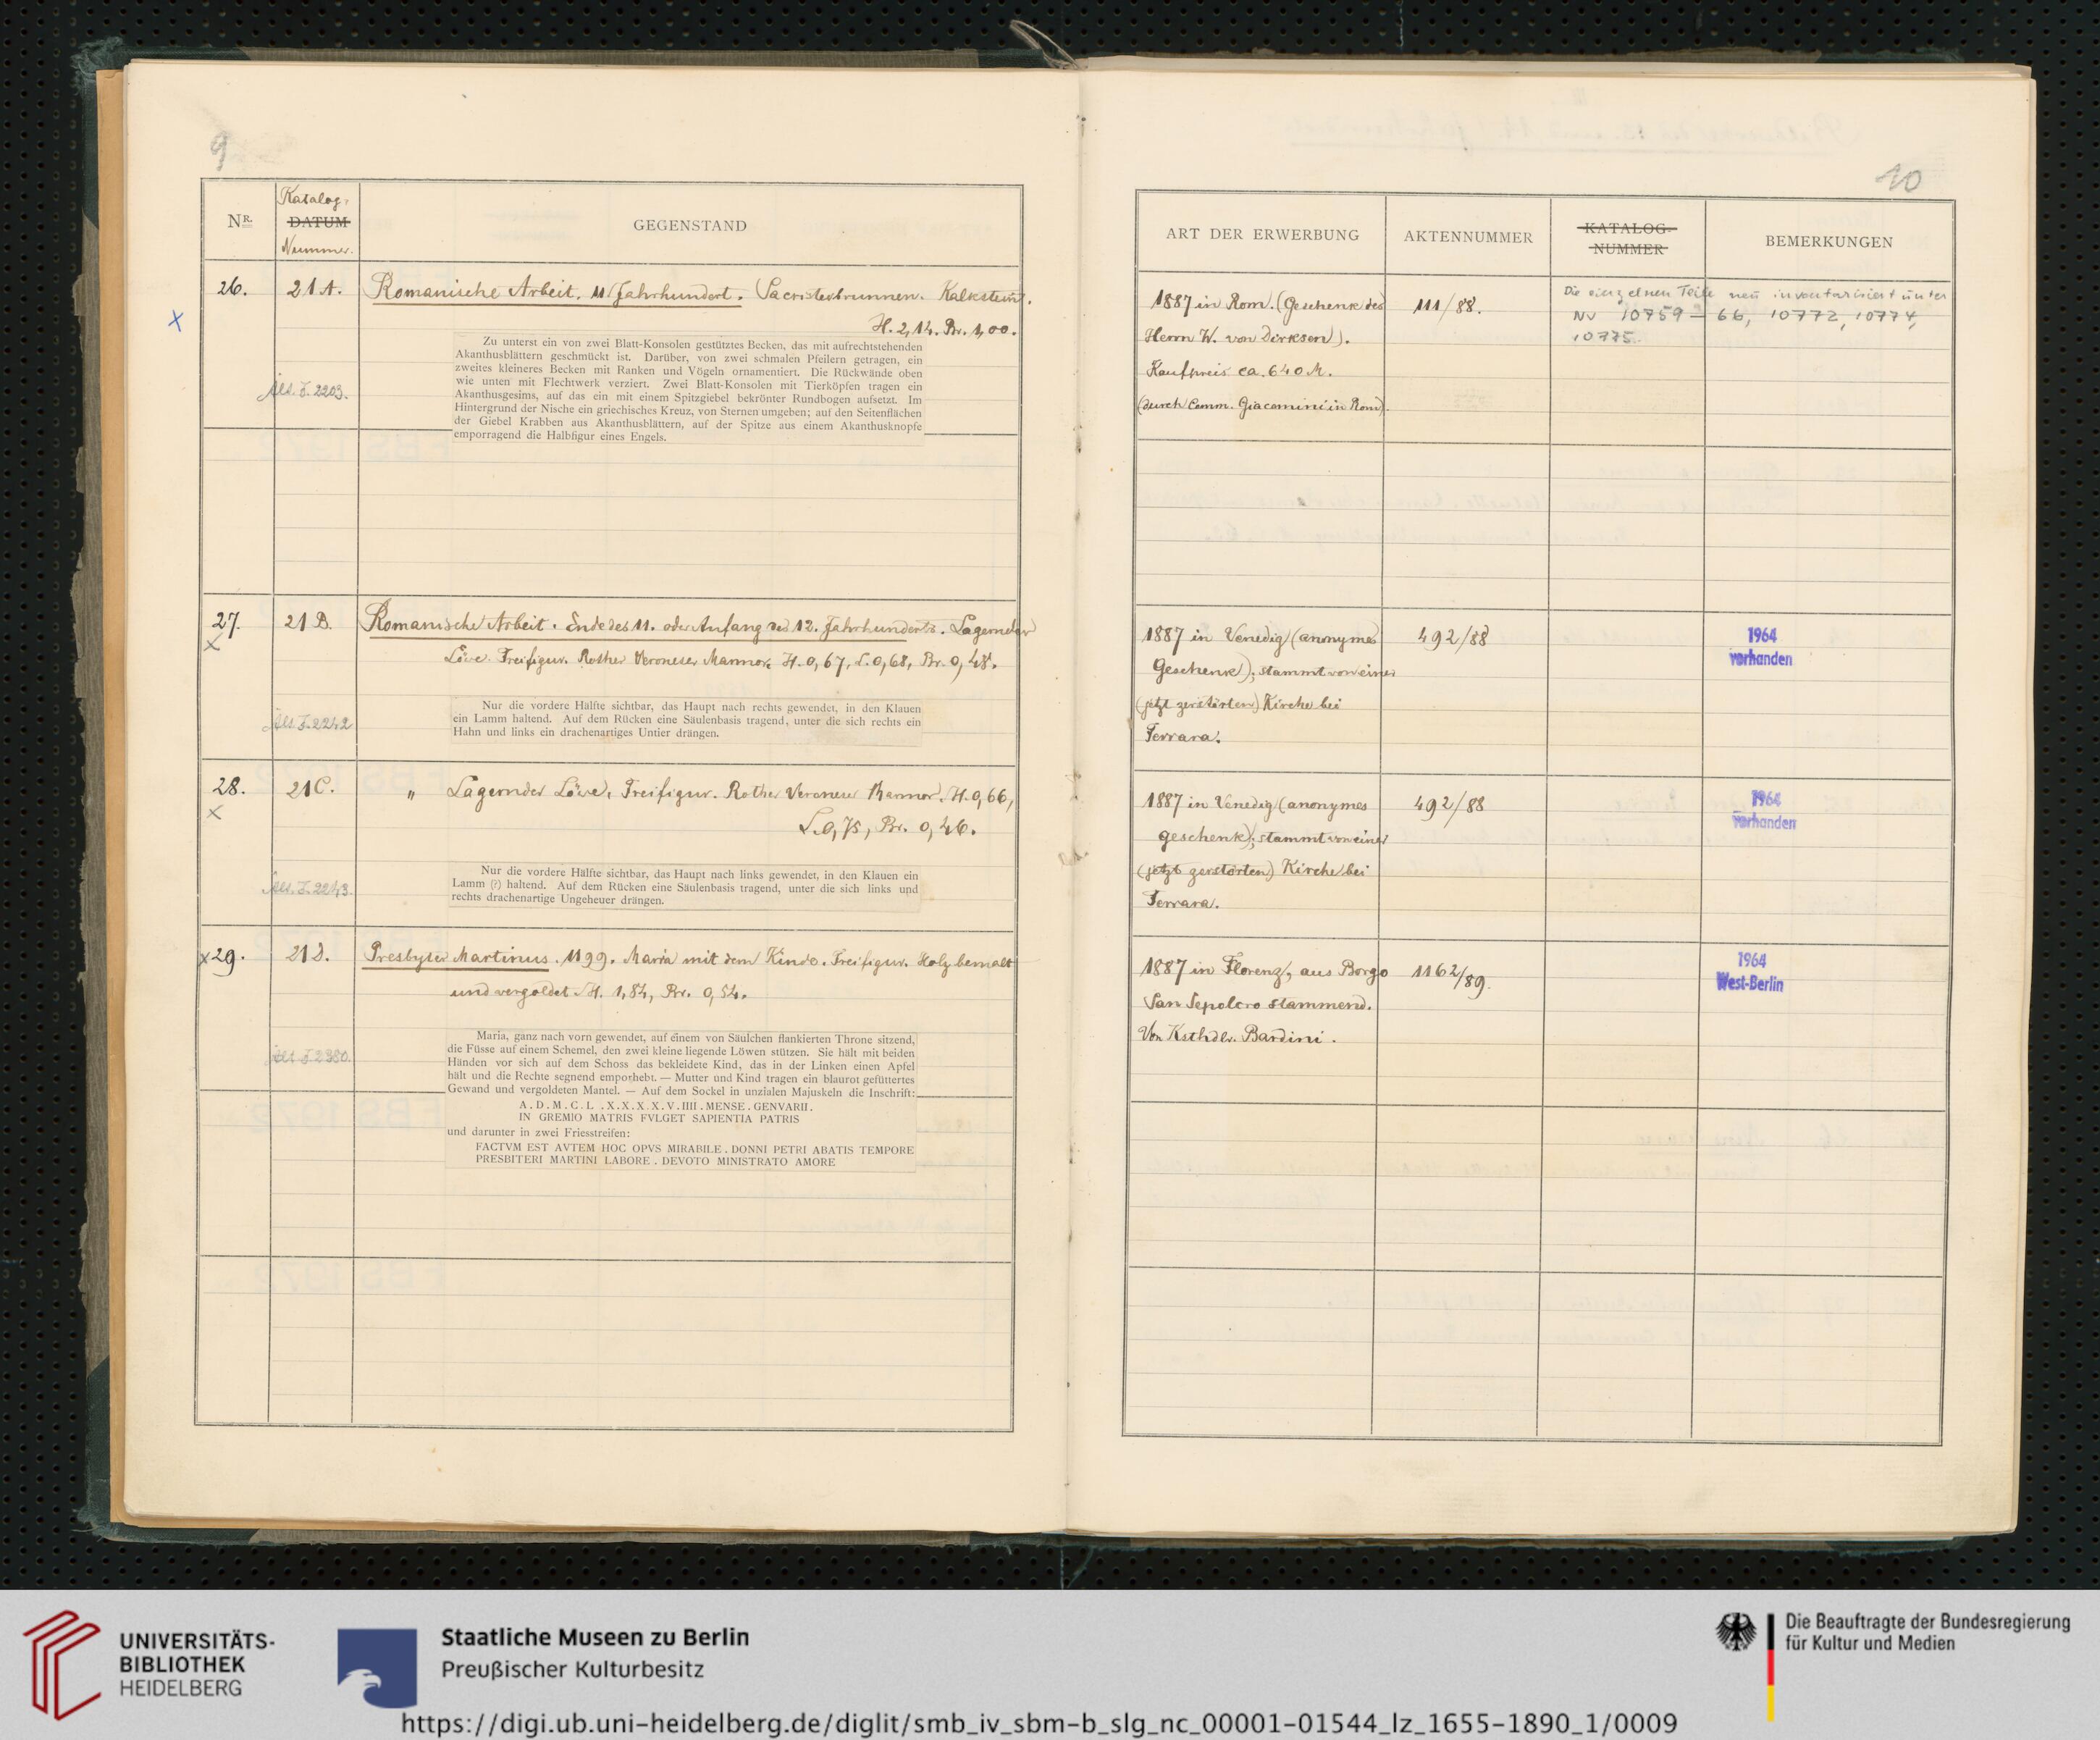 9
Nr.
Katalog-
DATUM
Nummer.
GEGENSTAND
26.
21A.
Romanische Arbeit. 11 Jahrhundert. Sacristeibrunnen. Kalkstein.
H. 2,14. Br. 1,00.
Zu unterst ein von zwei Blatt-Konsolen gestütztes Becken, das mit aufrechtstehenden
Akanthusblättern geschmückt ist. Darüber, von zwei schmalen Pfeilern getragen, ein
zweites kleineres Becken mit Ranken und Vögeln ornamentiert. Die Rückwände oben
wie unten mit Flechtwerk verziert. Zwei Blatt-Konsolen mit Tierköpfen tragen ein
Akanthusgesims, auf das ein mit einem Spitzgiebel bekrönter Rundbogen aufsetzt. Im
Hintergrund der Nische ein griechisches Kreuz, von Sternen umgeben; auf den Seitenflächen
der Giebel Krabben aus Akanthusblättern, auf der Spitze aus einem Akanthusknopfe
emporragend die Halbfigur eines Engels.
J. 2203.
27.
21B.
Romanische Arbeit. Ende des 11. oder Anfang des 12. Jahrhunderts. Lagernder
Löwe. Freifigur. Rother Veroneser Marmor. H. 0,67, L. 0,68, Br. 0,48.
Nur die vordere Hälfte sichtbar, das Haupt nach rechts gewendet, in den Klauen
ein Lamm haltend. Auf dem Rücken eine Säulenbasis tragend, unter die sich rechts ein
Hahn und links ein drachenartiges Untier drängen.
J. 2242
28.
21C.
" Lagernder Löwe, Freifigur. Rother Veroneser Marmor. H. 0,66,
L. 0,75, Br. 0,46.
Nur die vordere Hälfte sichtbar, das Haupt nach links gewendet, in den Klauen ein
Lamm (?) haltend. Auf dem Rücken eine Säulenbasis tragend, unter die sich links und
rechts drachenartige Ungeheuer drängen.
J. 2243.
x29.
21D.
Presbyter Martinus. 1199. Maria mit dem Kinde. Freifigur. Holz bemalt
und vergoldet. H. 1,84, Br. 0,54.
Maria, ganz nach vorn gewendet, auf einem von Säulchen flankierten Throne sitzend,
die Füsse auf einem Schemel, den zwei kleine liegende Löwen stützen. Sie hält mit beiden
Händen vor sich auf dem Schoss das bekleidete Kind, das in der Linken einen Apfel
hält und die Rechte segnend emporhebt. — Mutter und Kind tragen ein blaurot gefüttertes
Gewand und vergoldeten Mantel. — Auf dem Sockel in unzialen Majuskeln die Inschrift:
A . D . M . C . L . X . X . X . X . V . IIII . MENSE . GENVARII .
IN GREMIO MATRIS FVLGET SAPIENTIA PATRIS
und darunter in zwei Friesstreifen:
FACTVM EST AVTEM HOC OPVS MIRABILE . DONNI PETRI ABATIS TEMPORE
PRESBITERI MARTINI LABORE . DEVOTO MINISTRATO AMORE
J. 2380.
10
ART DER ERWERBUNG
AKTENNUMMER
KATALOG-
NUMMER
BEMERKUNGEN
1887 in Rom. (Geschenk des
Herrn W. von Dirksen).
Kaufpreis ca. 640 M.
(durch Comm. Giacomini in Rom).
111/88.
Die einzelnen Teile neu inventarisiert unter
NV 10759 – 66, 10772, 10774,
10775.
1887 in Venedig (anonymes
Geschenk); stammt von einer
(jetzt zerstörten) Kirche bei
Ferrara.
492/88
1964
vorhanden
1887 in Venedig (anonymes
geschenk); stammt von einer
(jetzt zerstörten) Kirche bei
Ferrara.
492/88
1964
vorhanden
1887 in Florenz, aus Borgo
San Sepolcro stammend.
Von Ksthdlr. Bardini.
1162/89.
1964
West-Berlin
UNIVERSITÄTS-
BIBLIOTHEK
HEIDELBERG
Staatliche Museen zu Berlin
Preußischer Kulturbesitz
Die Beauftragte der Bundesregierung
für Kultur und Medien
https://digi.ub.uni-heidelberg.de/diglit/smb_iv_sbm-b_slg_nc_00001-01544_lz_1655-1890_1/0009